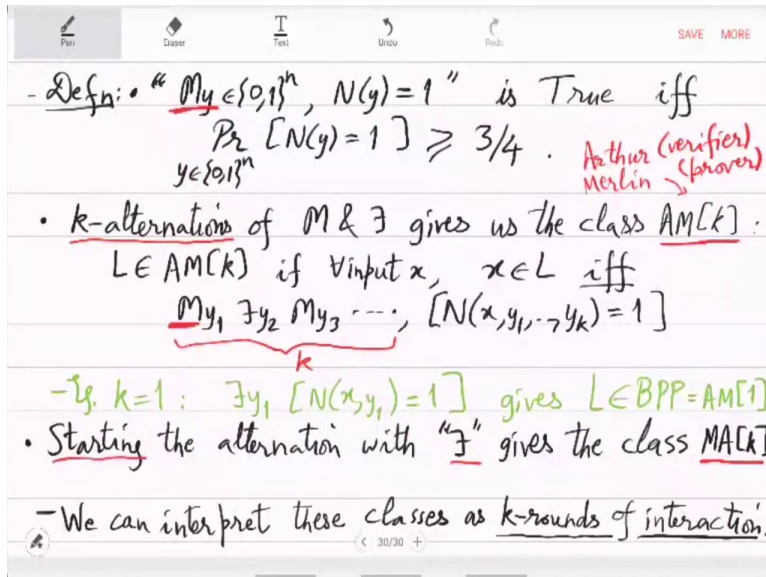 Pen Eraser Text Undo Redo SAVE MORE
- Defn: • "My∈{0,1}ⁿ, N(y)=1" is True iff
Pr [N(y)=1] ⩾ 3/4.
y∈{0,1}ⁿ
Arthur (verifier)
Merlin (prover)
• k-alternations of M & ∃ gives us the class AM[k]:
L∈AM[k] if ∀input x, x∈L iff
My₁ ∃y₂ My₃ ⋯, [N(x,y₁,..,yₖ)=1]
k
- Eg. k=1: ∃y₁ [N(x,y₁)=1] gives L∈BPP=AM[1]
• Starting the alternation with "∃" gives the class MA[k]
- We can interpret these classes as k-rounds of interaction.
< 30/30 +